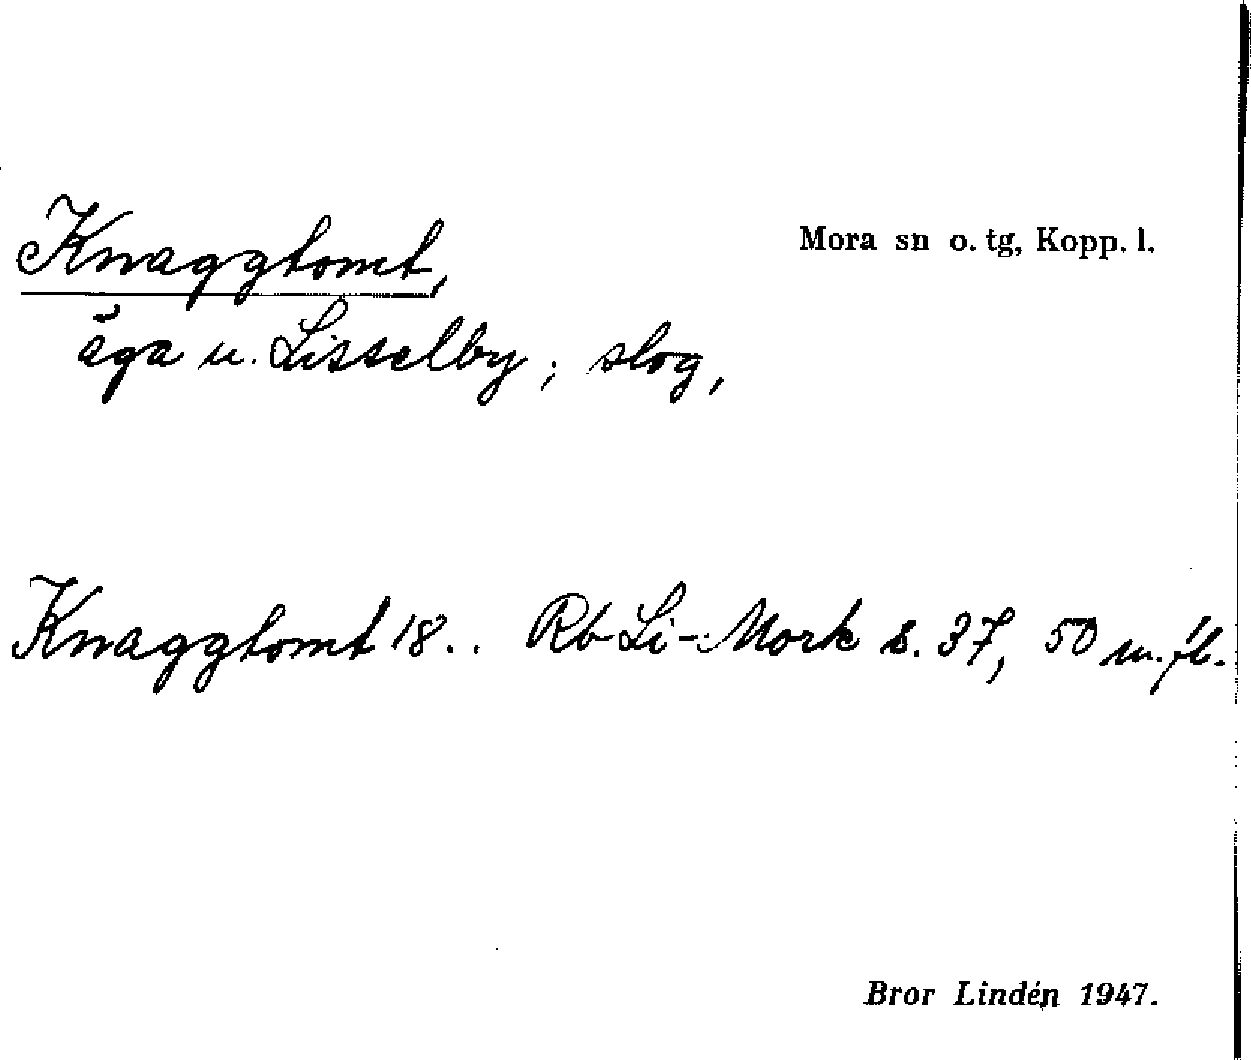 Knaggtomt,
Mora sn o. tg, Kopp. l.
äga u. Lisselby; slog,
Knaggtomt 18.. Rb Li-Mork s. 37, 50 m.fl.
Bror Lindén 1947.